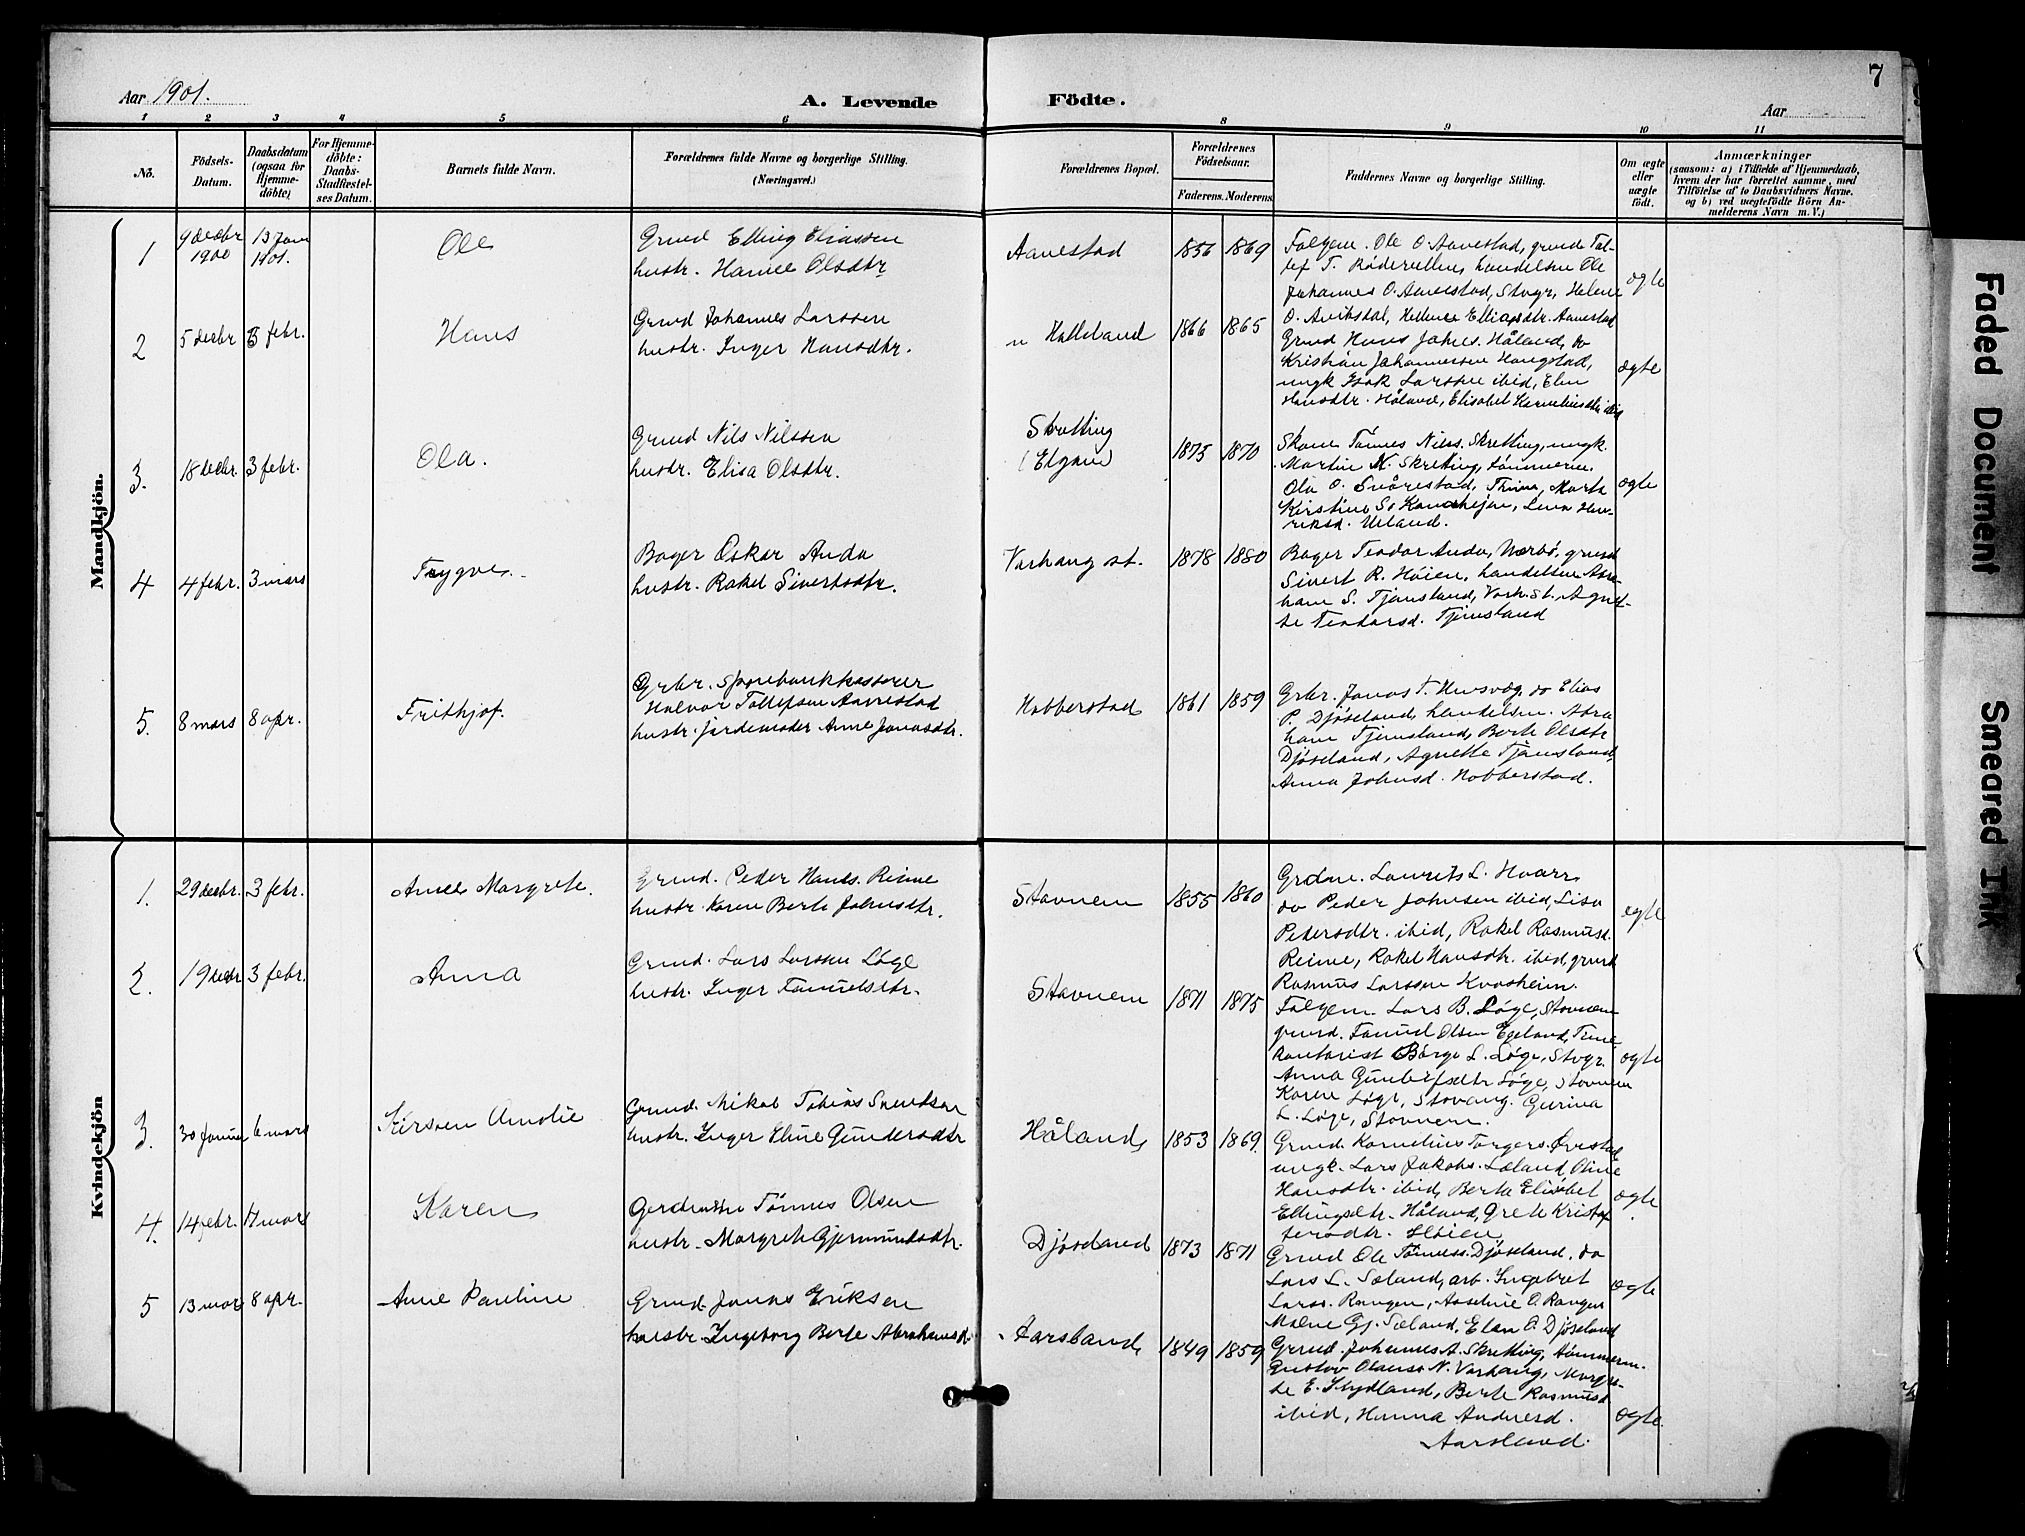 7
Aar 1901.
A. Levende
Födte.
Aar
1 2 3 4 5 6 8 9 10 11
No.
Födsels-
Datum.
Daabsdatum
(ogsaa for
Hjemme-
döbte)
For Hjemme-
döbte:
Daabs-
Stadfæstel-
ses Datum.
Barnets fulde Navn.
Forældrenes fulde Navne og borgerlige Stilling.
(Næringsvei.)
Forældrenes Bopæl.
Forældrenes
Födselsaar.
Faderens. Moderens.
Faddernes Navne og borgerlige Stilling.
Om ægte
eller
uægte
födt.
Anmærkninger
(saasom: a) i Tilfælde af Hjemmedaab,
hvem der har forrettet samme, med
Tilföielse af to Daabsvidners Navne.
og b) ved uægtefödte Börn An-
melderens Navn m. V.)
Mandkjön.
1
9 decbr
1900
13 Jan
1901.
Ole
Grmd Elling Eliassen
hustr. Hanne Olsdtr
Aanestad
1856 1869
Folgem. Ole O. Aanestad, grmd Tol-
lef T. Rödervollen, handelsm Ole
Johannes O. Aanestad, Stvgr, Helene
O. Aanestad
ægte
2
5 decbr
3 febr.
Hans
Grmd Johannes Larssen
hustr. Inger Hansdtr.
Halleland
1866 1865
Grmd Hans Johns. Håland, do
Kristian Johannessen Haugstad,
ungk Isak Larssen ibid, Elen
Hansdtr. Håland, Elisabet Korneliusdtr ibid
ægte
3.
18 decbr.
3 febr.
Ola.
Grmd Nils Nilssen
hustr. Elisa Olsdtr.
Skretting
1875 1870
Tönnes Nils. Skretting, ungk.
Martin N. Skretting, tömmerm.
Ola O. Svårestad, Thime, Marta
Kirstine
riksd. Ueland.
ægte
4
4 febr.
3 mars
Trygve.
Bager Oskar Anda
hustr. Rakel Sivertsdtr.
Varhaug st.
1878 1880
Bager Teodor Anda, Nærbö, grmd
Sivert R. Höien, handelsm Abra-
ham S. Tjemsland, Varh. st., Agnet-
te Teodorsd. Tjemsland
5.
8 mars
8 apr.
Frithjof.
Grbr. Sparebankkasserer
Halvor Tollefsen Aanestad
hustr. jordemoder Anne Jonasdtr.
Hobberstad
1861 1859
Grbr. Jonas T. Husvæg, do Elias
P. Djöseland, handelsm. Abra
ham Tjemsland, Berte Olsdtr
Djöseland, Agnette Tjemsland,
Anna Johnsd. Hobberstad.
Kvindekjön
1.
29 decbr.
3 febr.
Anne Margrete.
Grmd. Peder Hans. Reime
hustr. Karen Berte Johnsdtr.
Stavnem
1855 1860
Laurits L. Hvarr,
do Peder Johnsen ibid, Lisa
Pedersdtr. ibid, Rakel Rasmusd.
Reime, Rakel Hansdtr. ibid, grmd
Rasmus Larssen Kvasheim.
egte
2.
19 decbr
3 febr.
Anna
Grmd. Lars Larssen Löge
hustr. Inger Tamuelsdtr.
Stavnem
1871 1875
Folgem. Lars B. Löge, Stavnem
grmd. Tamud Olsen Egeland, Time
kontorist Börge L. Löge, Stvgr.
Anna Gunleifsdtr Löge, Stavnem
Karen Löge, Stavang. Gurina
L. Löge, Stavnem.
egte
3.
30 Januar
6 mars
Kirsten Amalie
Grmd. Mikal Tobias Svendsen
hustr. Inger Eline Gundersdtr
Håland,
1853 1869.
Grmd. Kornelius Torgers. Överstad
ungk. Lars Jakobs. Læland, Oline
Hansdtr. ibid, Berta Elisabet
Ellingsdtr. Håland, Grete Kristof
fersdtr. Höien
ægte
4.
14 febr.
7 mars
Karen
Tönnes Olsen
hustr. Margrete Gjermundsdtr.
Djöseland
1873 1871
Grmd Ole Tönness. Djöseland, do
Lars L. Sæland, arb. Ingebret
Larss. Rangen, Aaseline O. Rangen
Malene Gj. Sæland, Elen O. Djöseland
ægte
5
13 mars
8 apr.
Anne Pauline
Grmd Jonas Eriksen
hustr. Ingeborg Berte Abrahamsd.
Aarsland,
1849 1859
Grmd. Johannes A. Skretting, tömmerm.
Gustav Olauss. N. Varhaug, Margre-
te E. Stydland, Berte Rasmusd
ibid, Hanna Andreasd.
Aarsland.
ægte.
Faded Document
Smeared Ink